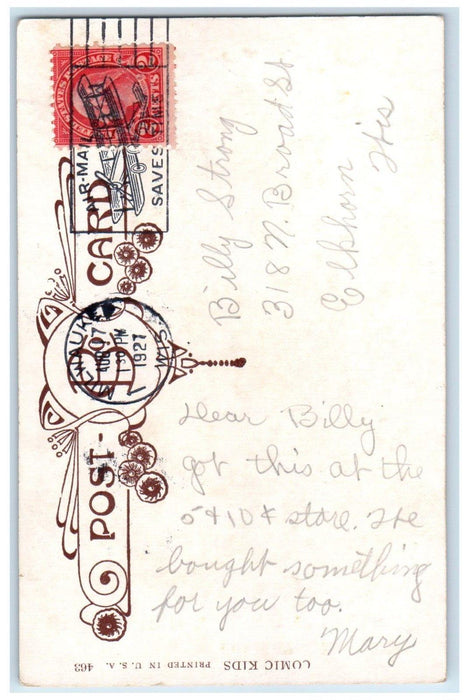 2 CENTS 2
AIR MAIL
SAVES TIME
MILWAUKEE
AUG 7
1 30 PM
1927
WIS.
POST CARD
B B
Billy Strong
318 N. Broad St
Elkhorn
Wis
Dear Billy
got this at the
5 & 10 ¢ store. We
bought something
for you too.
Mary
COMIC KIDS PRINTED IN U. S. A. 463